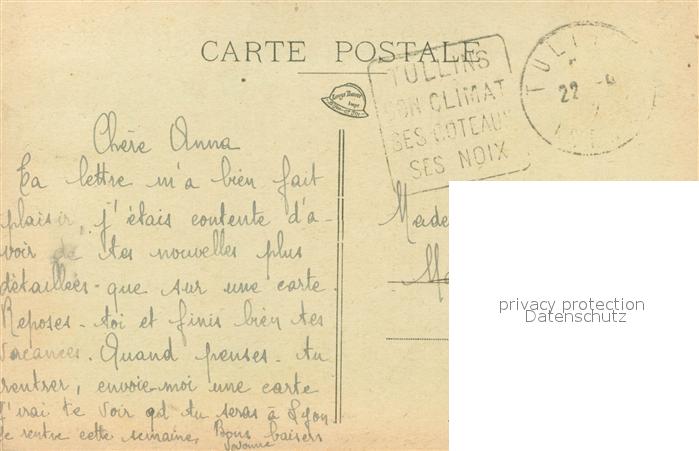 CARTE POSTALE
TULLINS
SON CLIMAT
SES COTEAUX
SES NOIX
TULLINS
22
Chère Anna
Ta lettre m'a bien fait
plaisir, j'étais contente d'a-
voir de tes nouvelles plus
détaillées que sur une carte.
Reposes-toi et finis bien tes
vacances. Quand penses-tu
rentrer, envoie-moi une carte
J'irai te voir qd tu seras à Lyon
Je rentre cette semaine. Bons baisers
Made
privacy protection
Datenschutz